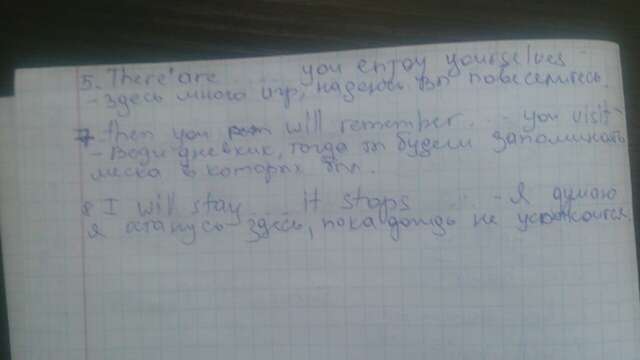 5. There are ... you enjoy yourselves
- Здесь много игр, надеюсь Вы повеселитесь.
7 Then you will remember ... - you visit
- Веди дневник, тогда ты будешь запоминать
места в которых был.
8 I will stay ... it stops ... - Я думаю
я останусь здесь, пока дождь не успокоится.